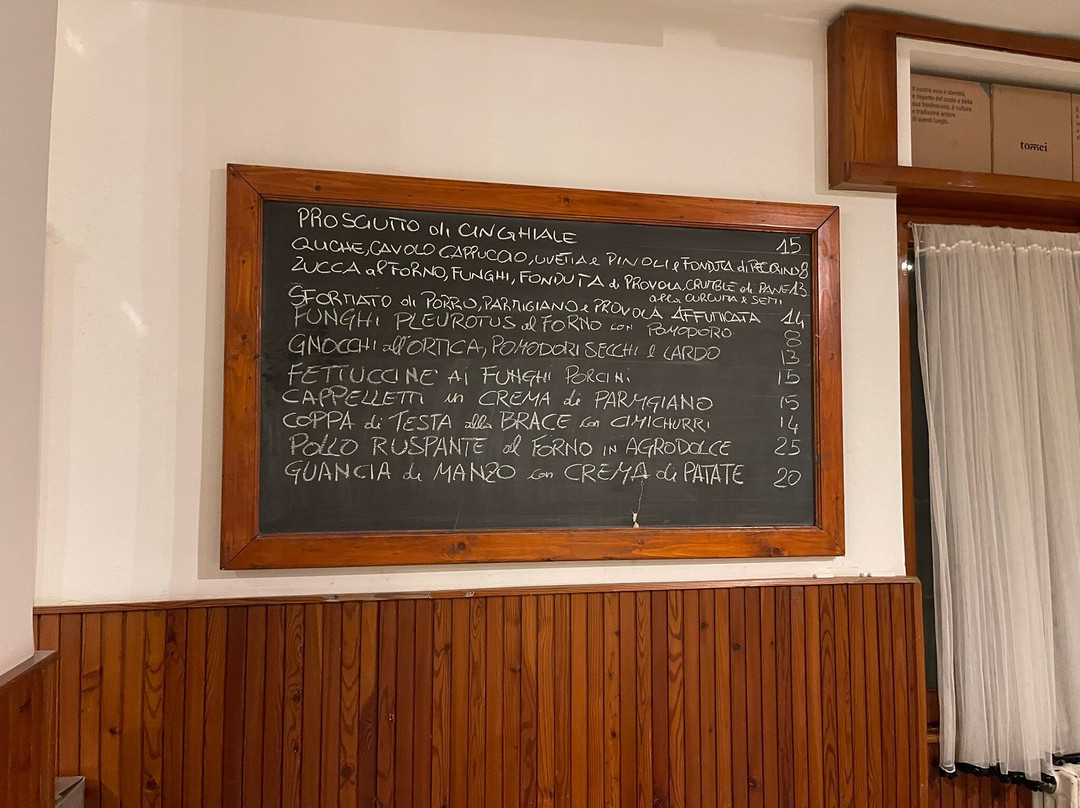 PROSCIUTTO di CINGHIALE 15
QUICHE, CAVOLO CAPPUCCIO, UVETTA e PINOLI e FONDUTA di PECORINO 8
ZUCCA al FORNO, FUNGHI, FONDUTA di PROVOLA, CRUMBLE di PANE 13
alla CURCUMA e SEMI
SFORMATO di PORRO, PARMIGIANO e PROVOLA AFFUMICATA 14
FUNGHI PLEUROTUS al FORNO con POMODORO 8
GNOCCHI all'ORTICA, POMODORI SECCHI e LARDO 13
FETTUCCINE AI FUNGHI PORCINI 15
CAPPELLETTI in CREMA di PARMGIANO 15
COPPA di TESTA alla BRACE con CIMICHURRI 14
POLLO RUSPANTE al FORNO IN AGRODOLCE 25
GUANCIA di MANZO con CREMA di PATATE 20
Il nostro vino è identità,
è rispetto del suolo e della
sua biodiversità, è cultura
e tradizione antica
di questi luoghi.
tommei